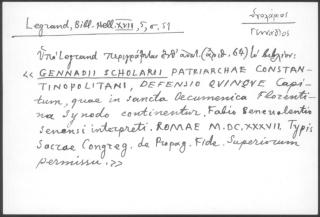 Legrand, Bibl. Hell. XVII, 5, σ. 51
Σχολάριος
Γεννάδιος
Ὑπὸ Legrand περιγράφεται ἐνθ' ἀνωτ. (ἀριθ. 64) τὸ βιβλίον:
« GENNADII SCHOLARII PATRIARCHAE CONSTAN-
TINOPOLITANI, DEFENSIO QUINQUE Capi-
tum, quae in sancta Oecumenica Florenti-
na Synodo continentur, Fabio Benevolentio
Senensi interpreti. ROMAE M.DC.XXXVII. Typis
Sacrae Congreg. de Propag. Fide. Superiorum
permissu. »